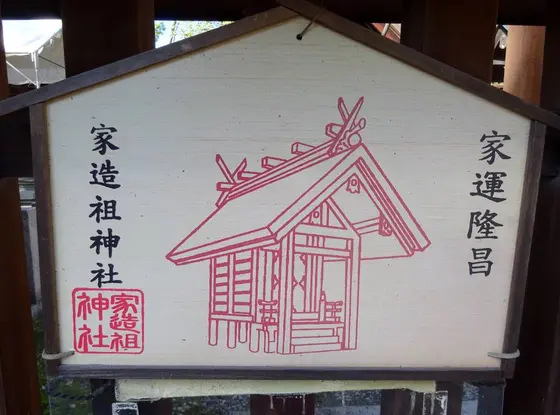 家運隆昌
家造祖神社
家造祖
神社